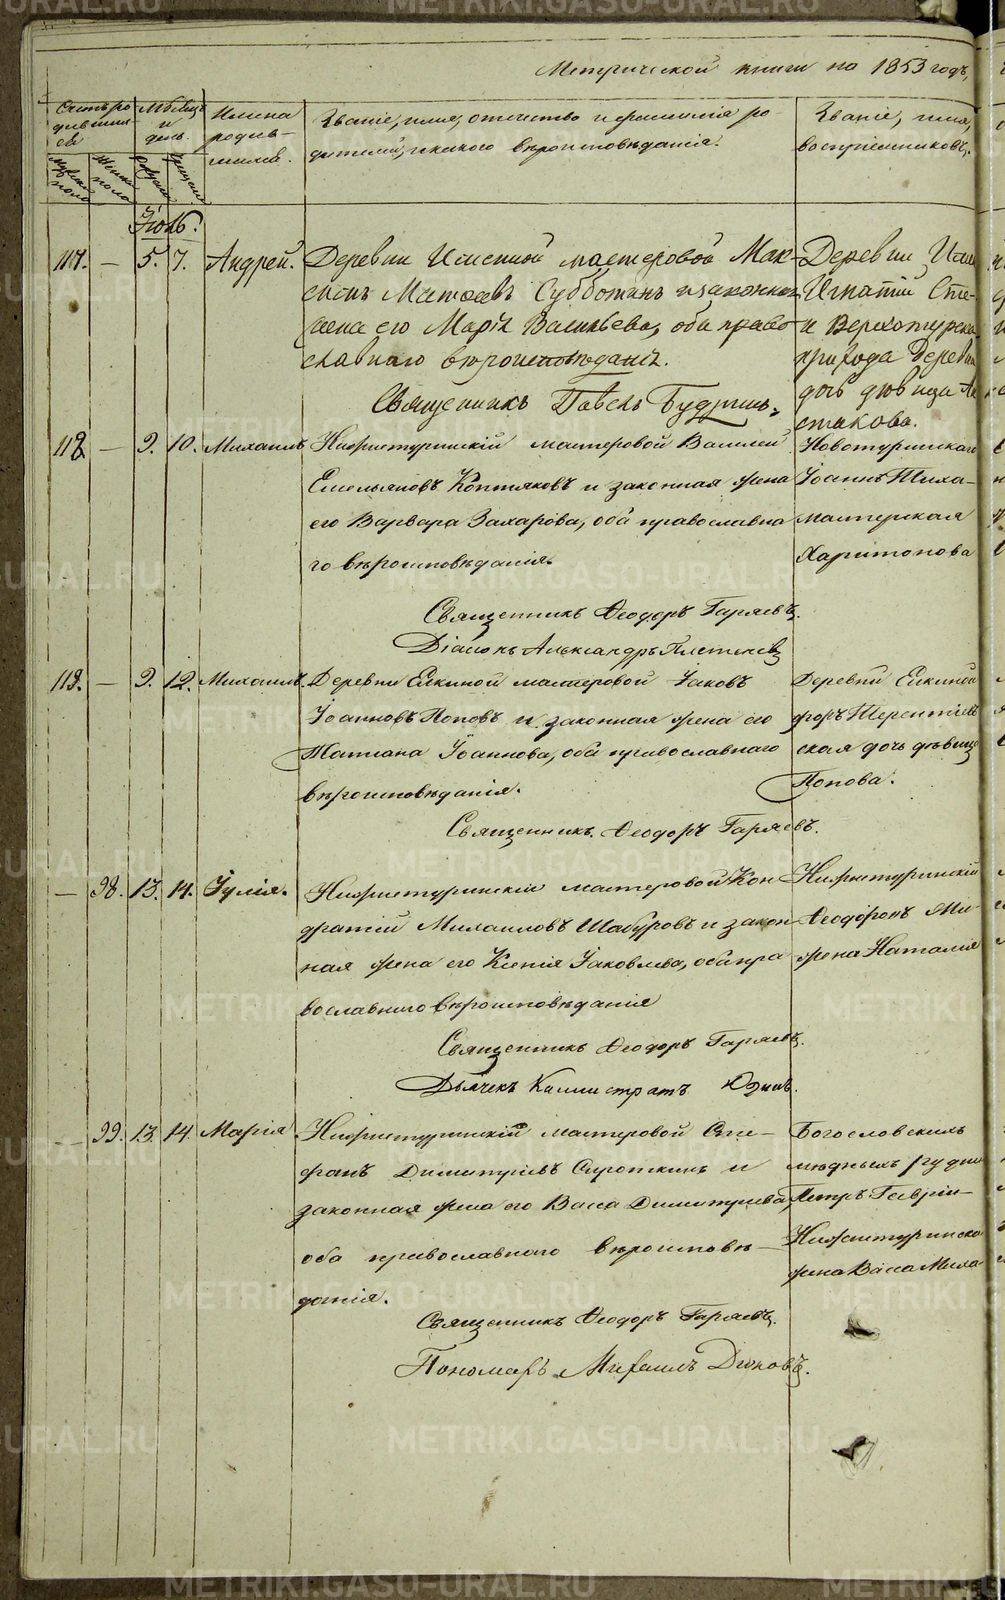 Метрической книги на 1853 годъ,
Счетъ ро
дивших
ся
Мѣсяцъ
и
день.
Имена
родив-
шихся.
Званіе, имя, отечество и фамилія ро-
дителей, и какого вѣроисповѣданія.
Званіе, имя,
воспріемниковъ,
Мужеска
пола
Женска
пола
Рожденія
Крещенія
Іюль.
117. — 5. 7. Андрей. Деревни Именной мастеровой Мак-
симъ Матѳеевъ Субботинъ и законная
жена его Марія Васильева, оба право-
славнаго вѣроисповѣданія.
Священникъ Павелъ Будринъ.
Деревни Имен
Игнатій Сте-
и Верхотурска
прихода деревни
дочь дѣвица Ан
стакова.
118. — 9. 10. Михаилъ Нижнетуринскій мастеровой Василей
Емельяновъ Коптяковъ и законная жена
его Варвара Захарова, оба православна
го вѣроисповѣданія.
Священникъ Ѳеодоръ Гаряевъ.
Діаконъ Александръ Плетневъ
Новотуринскаго
Іоаннъ Тиха-
мастерская
Харитонова
119. — 9. 12. Михаилъ. Деревни Елкиной мастеровой Іаковъ
Іоанновъ Поповъ и законная жена его
Татіана Іоаннова, оба православнаго
вѣроисповѣданія.
Священникъ Ѳеодоръ Гаряевъ.
Деревни Елкиной
форъ Терентіевъ
ская дочь дѣвица
Попова.
— 98. 13. 14. Іулія. Нижнетуринскій мастеровой Кон
дратій Михаиловъ Шабуровъ и закон-
ная жена его Ксенія Іаковлева, оба пра
вославнаго вѣроисповѣданія
Священникъ Ѳеодоръ Гаряевъ.
Дьячекъ Каллистратъ Юдинъ.
Нижнетуринскій
Ѳеодоръ Ми-
жена Наталія
— 99. 13. 14. Марія. Нижнетуринскій мастеровой Сте-
фанъ Димитріевъ Сироткинъ и
законная жена его Васса Димитріева,
оба православнаго вѣроисповѣ-
данія.
Священникъ Ѳеодоръ Гаряевъ.
Пономарь Михаилъ Діоновъ.
Богословскихъ
мѣдныхъ рудни
Петръ Гаврiи-
Нижнетуринска
жена Васса Миха
METRIKI.GASO-URAL.RU